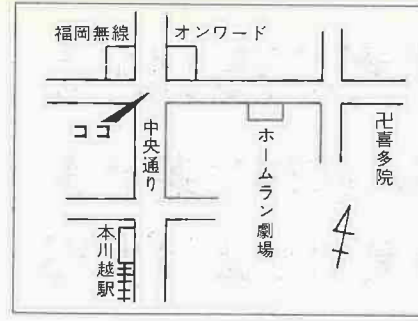 福岡無線
オンワード
ココ
中央通り
ホームラン劇場
卍喜多院
本川越駅